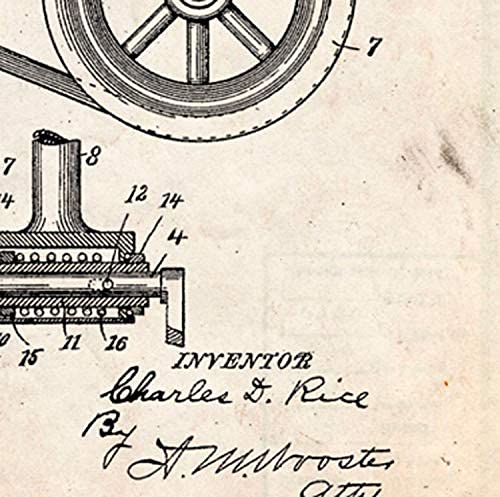 7
7
8
14
12
14
4
15
11
16
INVENTOR
Charles D. Rice
By
A. M. Wooster
Atty